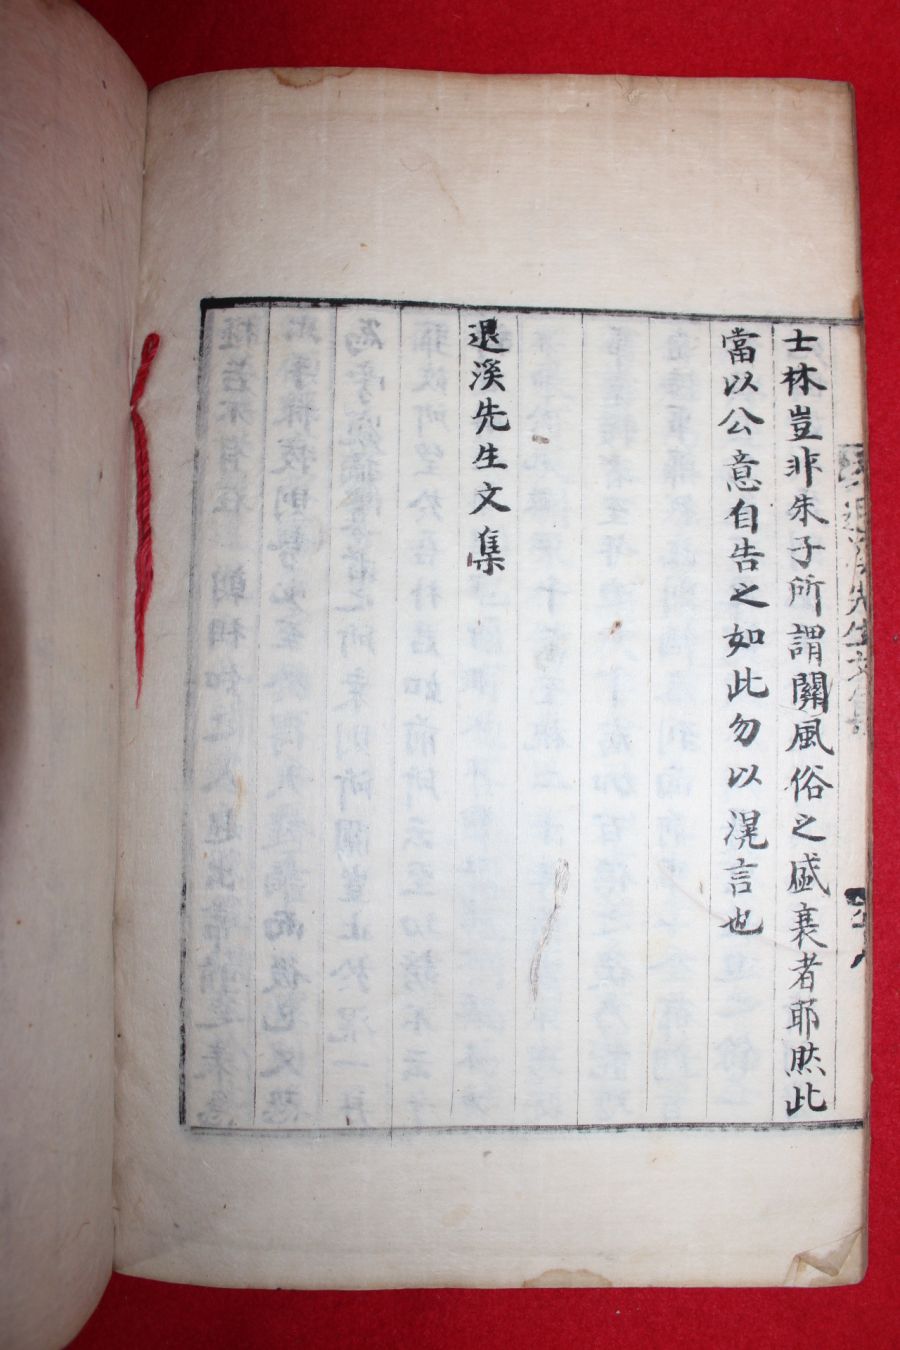 士林豈非朱子所謂關風俗之盛衰者耶然此
當以公意自告之如此勿以滉言也
退溪先生文集
退溪先生文集